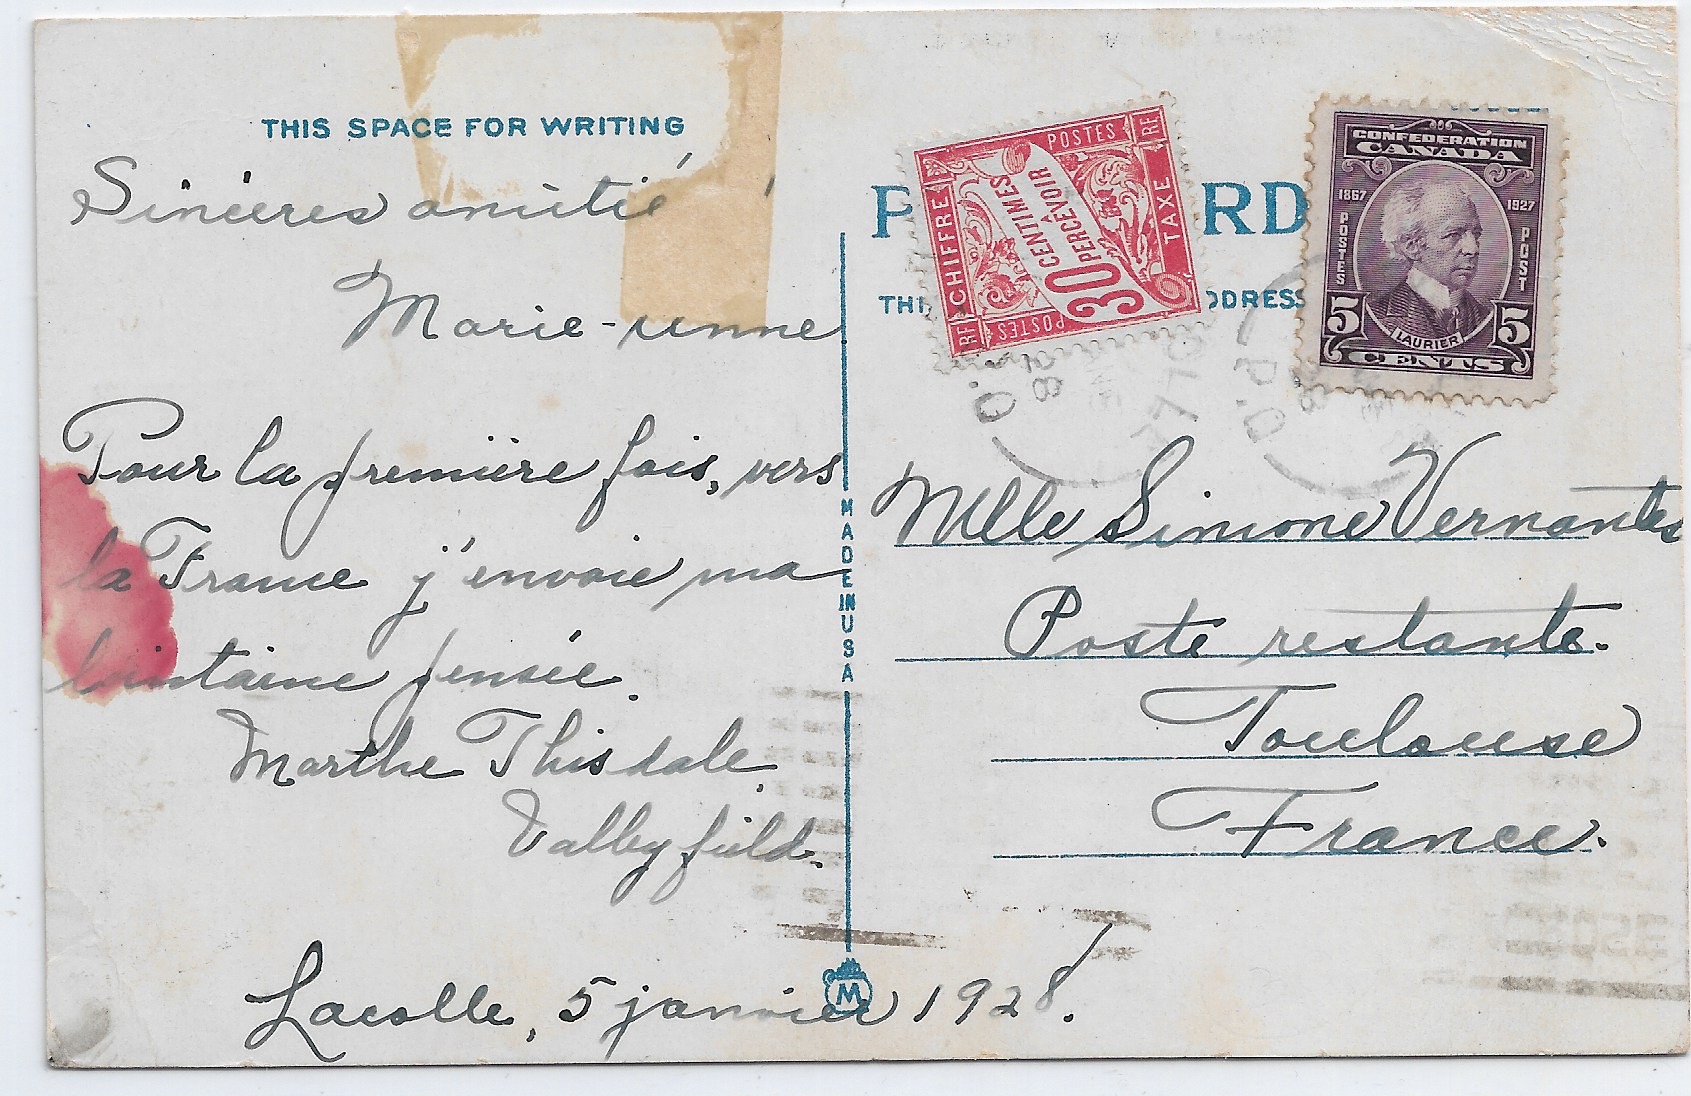 THIS SPACE FOR WRITING
Sincères amitié
Marie-unne
Pour la première fois, vers
la France j'envoie ma
lointaine pensée.
Marthe Thisdale,
Valleyfield.
Lacolle, 5 janvier 1928.
MADE IN USA
M
P RD
THI DDRESS
RF POSTES
CHIFFRE TAXE
30 CENTIMES
À PERCEVOIR
POSTES RF
CONFEDERATION
CANADA
1867 1927
POSTES POST
5 LAURIER 5
CENTS
P.Q.
28
Mlle Simone Vernantes
Poste restante.
Toulouse
France.